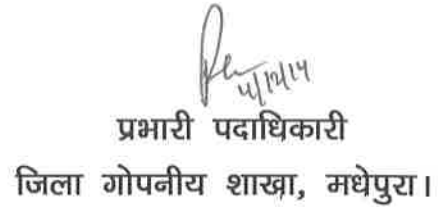 4/12/14
प्रभारी पदाधिकारी
जिला गोपनीय शाखा, मधेपुरा।